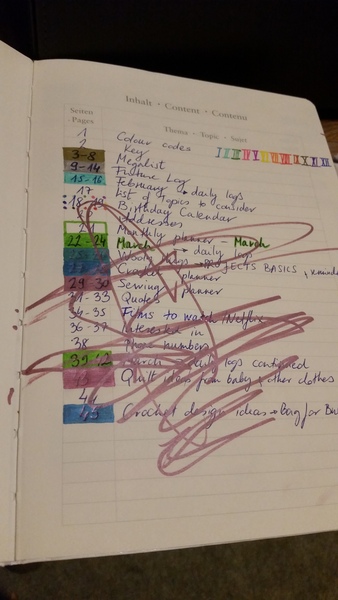 Inhalt · Content · Contenu
Seiten Thema · Topic · Sujet
Pages
1 Colour codes
2 Key
3-8 Megalist
9-14 Future Log
15-16 February → daily logs
17 List of topics to consider
18-19 Birthday Calendar
Addresses
21 Monthly planner - March
22-24 March → daily logs
PROJECTS BASICS &
Crochet planner
29 30 Sewing planner
31-33 Quotes
34-35 Films to watch /Netflix
36-37 Interested in
38 numbers
39-42 March daily logs continued
43 Quilt ideas from baby & other clothes
44
45 Crochet design ideas → Bag for